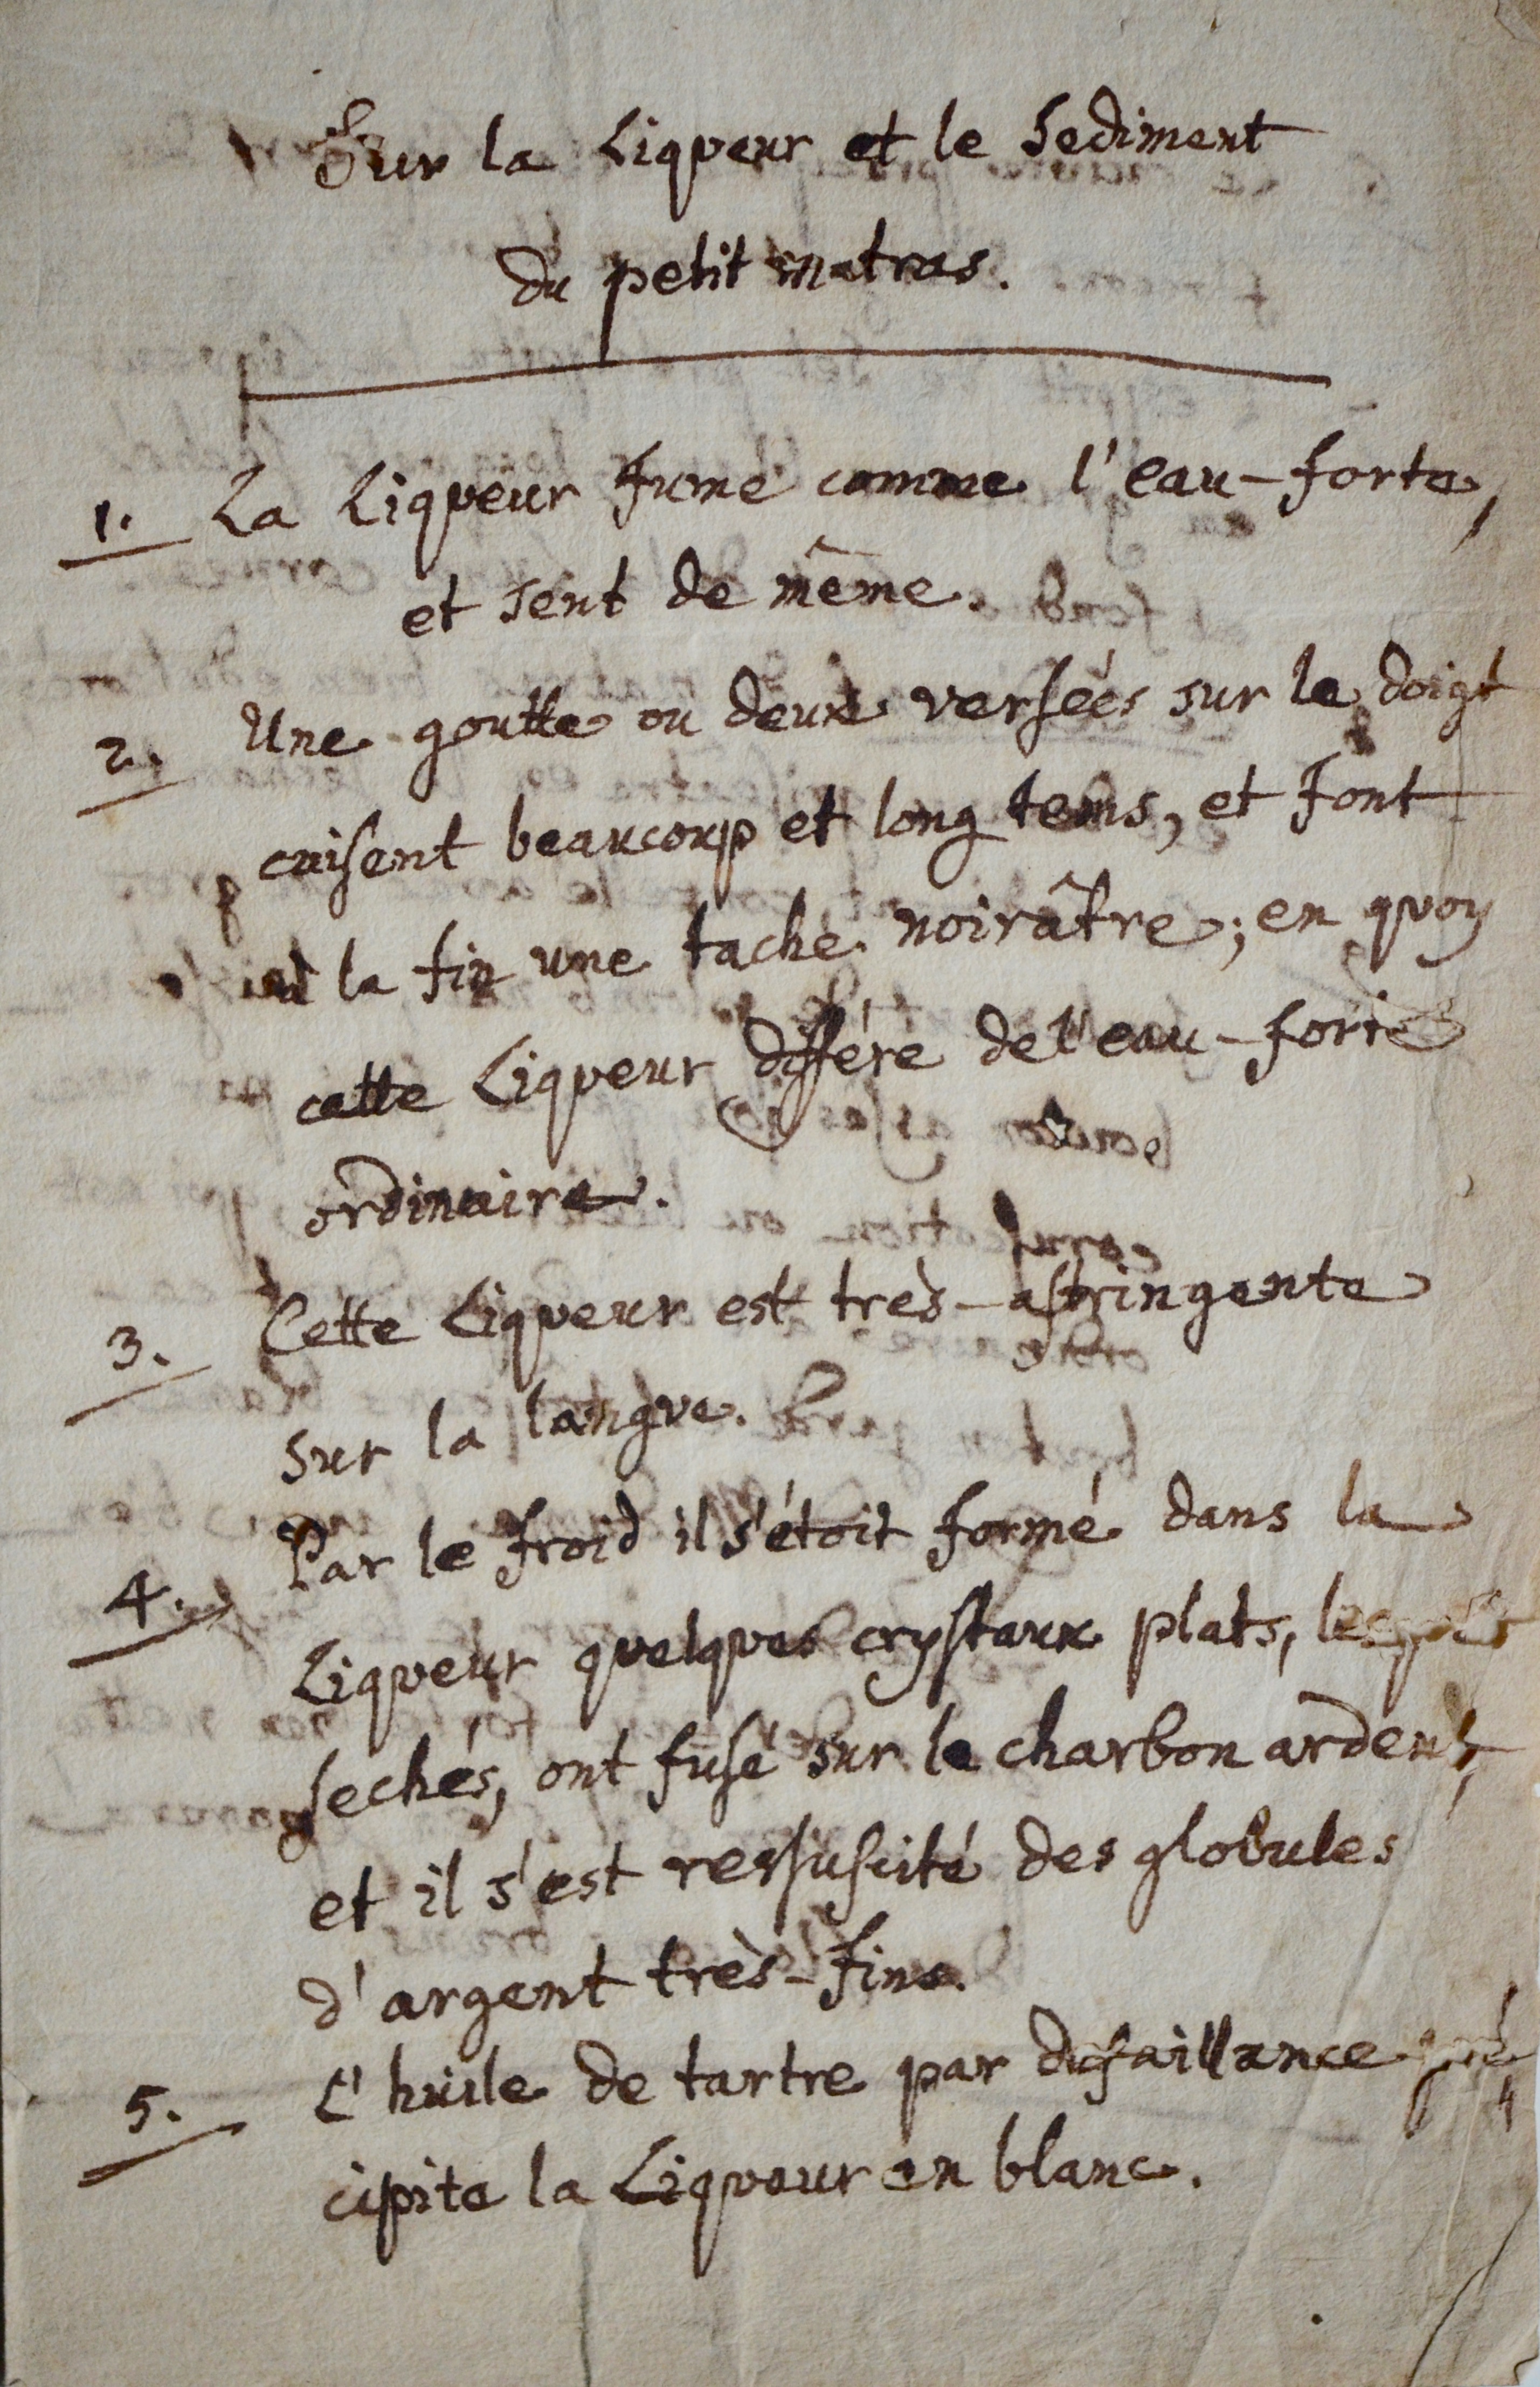 Sur la Liqueur et le Sediment
du petit matras.
1. La Liqueur fume comme l'eau-forte,
et sent de même.
2. Une goutte ou deux versées sur le doigt
cuisent beaucoup et long tems, et font
à la fin une tache noirâtre; en quoy
cette Liqueur différe de l'eau-forte
ordinaire.
3. Cette Liqueur est très-astringente
sur la langue.
4. Par le froid il s'étoit formé dans la
Liqueur quelques crystaux plats, lesquels
sechés, ont fusé sur le charbon ardent,
et il s'est ressuscité des globules
d'argent très-fins.
5. L'huile de tartre par defaillance pré
cipite la Liqueur en blanc.